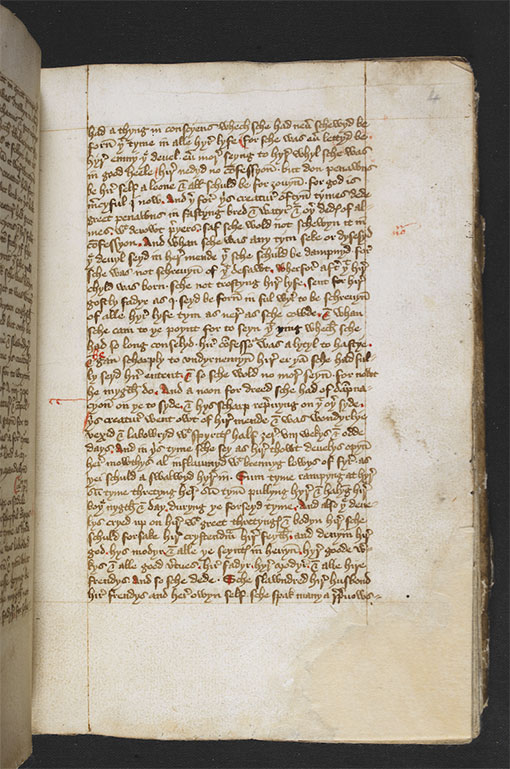 had a thyng in consyens whech sche had neuͬ schewyd be
forn yͭ tyme in alle hyr lyfe. For sche was euͬ lettyd be
hyr enmy yͤ deuel. euͬ moͬ seyng to hyr whyl sche was
in good heele hir nedyd no ꝯfessyon. but don penawns
be hir self a loone & all schuld be for ȝouyn. for god is
mͬcyful i now. And yͬ for yͥs creatur oftyn tymes dede
greet penawns in fastyng bred & watyr & oyͬ dedys of al
mes wͭ deuowt preyers saf sche wold not schewyn it in
ꝯfessyon. And whan sche was any tym seke or dysesyd
yͤ deuyl seyd in hir mende yͭ sche schuld be dampnyd for
sche was not schreuyn of yͭ defawt. Wherfor aftͬ yͭ hir
chyld was born sche not trostyng hir lyfe. sent for hir
gostly fadyr as i seyd be forn in ful wyl to be schreuyn
of alle hir lyfe tym as ner as sche cowde. & whan
sche cam to ye poynt for to seyn yͭ yng whech sche
had so long conselyd. hir ꝯfessoͬ was a lytyl to hastye.
& gan scharply to vndyrnemyn hir er yͣn sche had ful
ly seyd hir entent. & so sche wold no moͬ seyn for nowt
he mygth do. And a noon for dreed sche had of dāpna
cyon on ye to syde. & hys scharp repreuyng on yͭ oyͬ syde.
yͥs creatur went owt of hir mende & was wondyrlye
vexid & labowryd wͭ spyritys half ȝer viij wekys & odde
days. And in yͥs tyme sche sey as hir thowt deuelys opyn
her mowthys al inflaumyd wͭ brennyng lowys of fyr as
yei schuld a swalwyd hyr in. Sum tyme rampyng at hyr
sū tyme thretyng her. sū tym pullyng hyr & halyng hir
boyͤ nygth & day. duryng ye forseyd tyme. And also yͤ deue
lys cryed up on hir wͭ greet thretyngys & bodyn hir sche
schuld forsake hir crystendā hir feyth. and denyin hir
god. hys modyr & alle ye seyntys in heuyn. hyr goode w̓
kys & alle good v̓tues. hir fadyr. hyr modyr. & alle hire
frendys And so sche dede. Sche slawndred hir husbond
hir frendys and her owyn self. sche spak many a repreuows
4